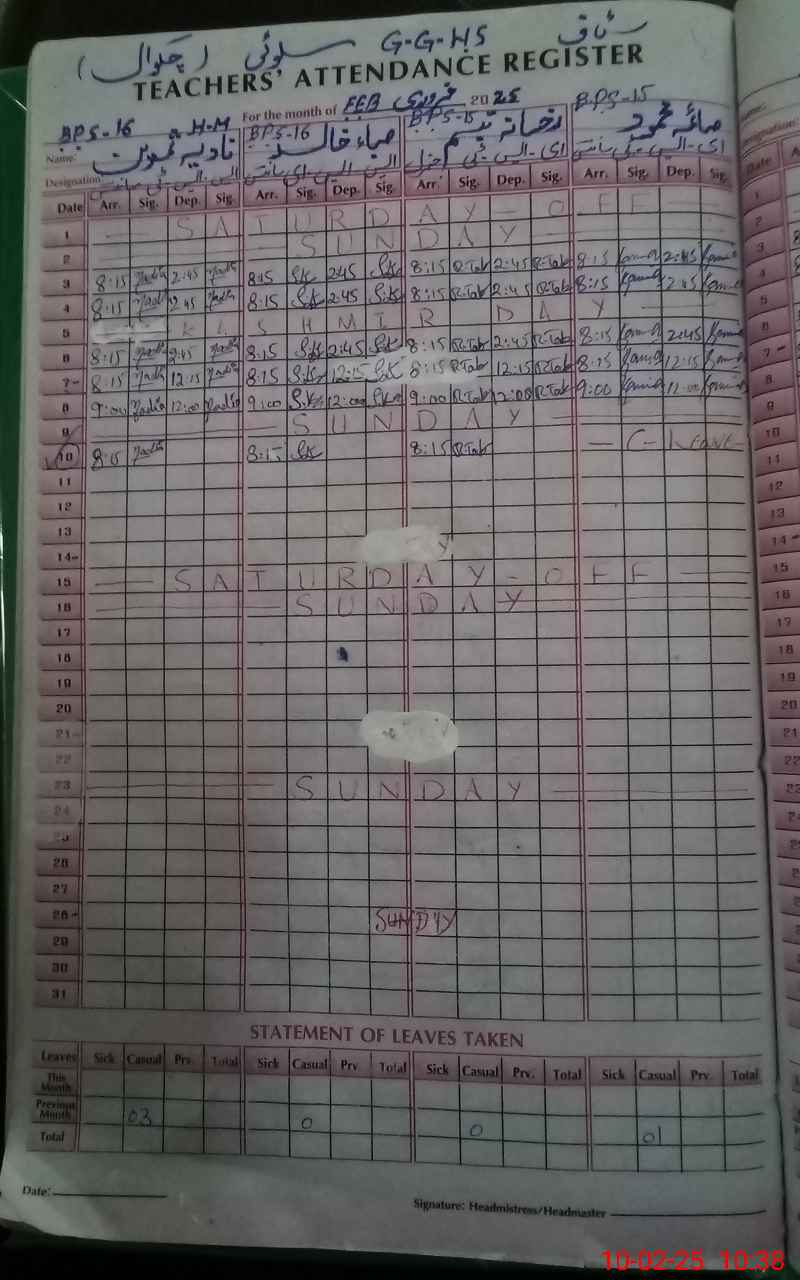 سٹاف G-G-HS سلوئی (چکوال)
TEACHERS' ATTENDANCE REGISTER
For the month of FEB فروری 2025
BPS-16 BPS-16 BPS-15 BPS-15
Name: نادیہ صباء خالد رخسانہ صائمہ محمود
Designation:
Date Arr. Sig. Dep. Sig. Arr. Sig. Dep. Sig. Arr. Sig. Dep. Sig. Arr. Sig. Dep. Sig.
1 SATURDAY-OFF
2 SUNDAY
3 8:15 2:45 8:15 SK 2:45 SK 8:15 R.Tab 2:45 R.Tab 8:15 2:45
4 8:15 2:45 8:15 SK 2:45 SK 8:15 R.Tab 2:45 R.Tab 8:15 2:45
5 SHMIR DAY
6 8:15 2:45 8:15 SK 2:45 SK 8:15 R.Tab 2:45 R.Tab 8:15 2:45
7 8:15 12:15 8:15 SK 12:15 SK 8:15 R.Tab 12:15 R.Tab 8:15 12:15
8 9:00 12:00 9:00 SK 12:00 SK 9:00 R.Tab 12:00 R.Tab 9:00 12:00
9 SUNDAY
10 8:15 8:15 SK 8:15 R.Tab C-LEAVE
11
12
13
14
15 SATURDAY-OFF
16 SUNDAY
17
18
19
20
21
22
23 SUNDAY
24
25
26
27
28 SUNDAY
29
30
31
STATEMENT OF LEAVES TAKEN
Leaves Sick Casual Prv. Total Sick Casual Prv. Total Sick Casual Prv. Total Sick Casual Prv. Total
This Month
Previous Month 03 0 0 01
Total
Date:
Signature: Headmistress/Headmaster
10-02-25 10:38